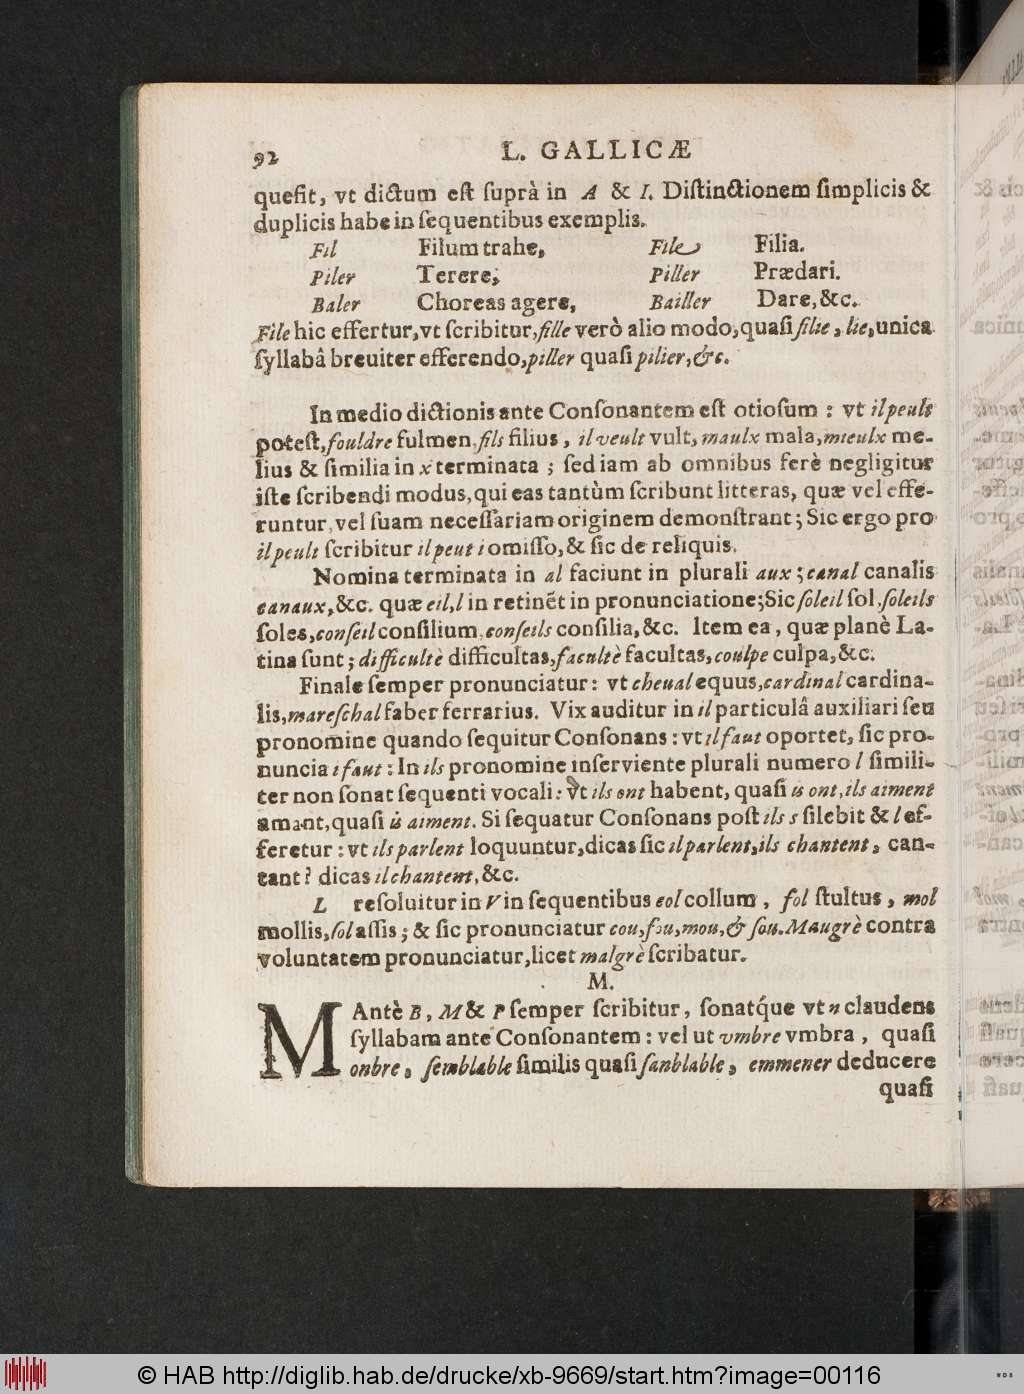 92 L. GALLICÆ
queſit, vt dictum eſt ſuprà in A & I. Diſtinctionem ſimplicis &
duplicis habe in ſequentibus exemplis.
Fil Filum trahe, File Filia.
Piler Terere, Piller Prædari.
Baler Choreas agere, Bailler Dare, &c.
File hic effertur, vt ſcribitur, fille verò alio modo, quaſi filie, lie, unica
ſyllabâ breuiter efferendo, piller quaſi pilier, &c.
In medio dictionis ante Conſonantem eſt otioſum : vt il peult
poteſt, fouldre fulmen, fils filius, il veult vult, maulx mala, mieulx me-
lius & ſimilia in x terminata ; ſed iam ab omnibus ferè negligitur
iſte ſcribendi modus, qui eas tantùm ſcribunt litteras, quæ vel effe-
runtur, vel ſuam neceſſariam originem demonſtrant ; Sic ergo pro
il peult ſcribitur il peut i omiſſo, & ſic de reliquis.
Nomina terminata in al faciunt in plurali aux ; canal canalis
canaux, &c. quæ eil, l in retinẽt in pronunciatione; Sic ſoleil ſol, ſoleils
ſoles, conſeil conſilium, conſeils conſilia, &c. Item ea, quæ planè La-
tina ſunt ; difficultè difficultas, facultè facultas, coulpe culpa, &c.
Finale ſemper pronunciatur : vt cheual equus, cardinal cardina-
lis, mareſchal faber ferrarius. Vix auditur in il particulâ auxiliari ſeu
pronomine quando ſequitur Conſonans : vt il faut oportet, ſic pro-
nuncia i faut : In ils pronomine inſerviente plurali numero l ſimili-
ter non ſonat ſequenti vocali : vt ils ont habent, quaſi is ont, ils aiment
amant, quaſi is aiment. Si ſequatur Conſonans poſt ils s ſilebit & l ef-
feretur : vt ils parlent loquuntur, dicas ſic il parlent, ils chantent, can-
tant ? dicas il chantent, &c.
L reſoluitur in V in ſequentibus col collum, fol ſtultus, mol
mollis, ſol aſſis ; & ſic pronunciatur cou, fou, mou, & ſou. Maugrè contra
voluntatem pronunciatur, licet malgrè ſcribatur.
M.
M Antè B, M & P ſemper ſcribitur, ſonatq́ue vt n claudens
ſyllabam ante Conſonantem : vel ut vmbre vmbra, quaſi
onbre, ſemblable ſimilis quaſi ſanblable, emmener deducere
quaſi
© HAB http://diglib.hab.de/drucke/xb-9669/start.htm?image=00116